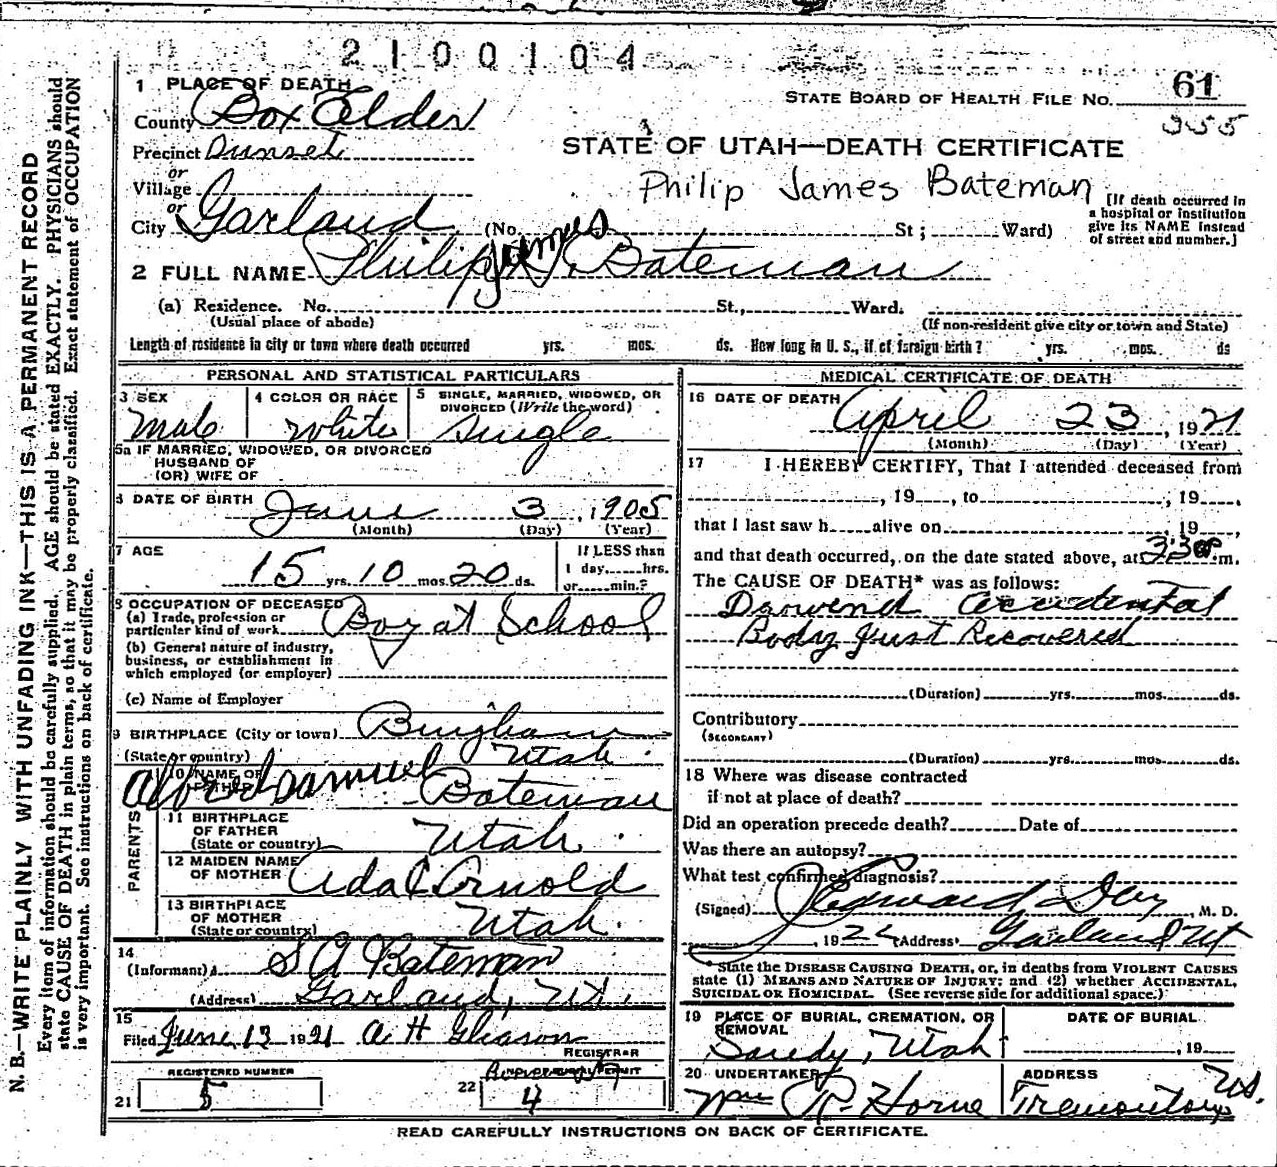 2100104
1 PLACE OF DEATH
STATE BOARD OF HEALTH FILE NO. 61
355
County Box Elder
Precinct Sunset
STATE OF UTAH—DEATH CERTIFICATE
or
Village
Philip James Bateman
or
City Garland (No. St; Ward)
[If death occurred in
a hospital or institution
give its NAME instead
of street and number.]
James
2 FULL NAME Philip J. Bateman
(a) Residence. No. St., Ward.
(Usual place of abode)
(If non-resident give city or town and State)
Length of residence in city or town where death occurred yrs. mos. ds. How long in U. S., if of foreign birth? yrs. mos. ds
PERSONAL AND STATISTICAL PARTICULARS
3 SEX
Male
4 COLOR OR RACE
White
5 SINGLE, MARRIED, WIDOWED, OR
DIVORCED (Write the word)
Single
5a IF MARRIED, WIDOWED, OR DIVORCED
HUSBAND OF
(OR) WIFE OF
6 DATE OF BIRTH June 3, 1905
(Month) (Day) (Year)
7 AGE
15 yrs. 10 mos. 20 ds.
If LESS than
1 day, hrs.
or min.?
8 OCCUPATION OF DECEASED
(a) Trade, profession or
particular kind of work Boy at School
(b) General nature of industry,
business, or establishment in
which employed (or employer)
(c) Name of Employer
9 BIRTHPLACE (City or town) Bingham
(State or country) Utah
10 NAME OF
FATHER
Alfred Samuel Bateman
PARENTS
11 BIRTHPLACE
OF FATHER
(State or country) Utah.
12 MAIDEN NAME
OF MOTHER Ada Arnold
13 BIRTHPLACE
OF MOTHER
(State or country) Utah.
14
(Informant) S A Bateman
(Address) Garland, Ut.
15
Filed June 13 1921 A H Gleason
REGISTRAR
REGISTERED NUMBER
21 5
22 4
MEDICAL CERTIFICATE OF DEATH
16 DATE OF DEATH
April 23, 1921
(Month) (Day) (Year)
17 I HEREBY CERTIFY, That I attended deceased from
, 19 , to , 19 ,
that I last saw h alive on , 19 ,
and that death occurred, on the date stated above, at 3:30 P.m.
The CAUSE OF DEATH* was as follows:
Drowend accidental
Body Just Recovered
(Duration) yrs. mos. ds.
Contributory
(SECONDARY)
(Duration) yrs. mos. ds.
18 Where was disease contracted
if not at place of death?
Did an operation precede death? Date of
Was there an autopsy?
What test confirmed diagnosis?
(Signed) Edward Day, M. D.
, 192 (Address) Garland Ut
*State the DISEASE CAUSING DEATH, or, in deaths from VIOLENT CAUSES
state (1) MEANS AND NATURE OF INJURY; and (2) whether ACCIDENTAL,
SUICIDAL OR HOMICIDAL. (See reverse side for additional space.)
19 PLACE OF BURIAL, CREMATION, OR
REMOVAL
Sandy, Utah
DATE OF BURIAL
, 19
20 UNDERTAKER
Wm R. Horne
ADDRESS
Tremonton Ut.
READ CAREFULLY INSTRUCTIONS ON BACK OF CERTIFICATE.
N. B.—WRITE PLAINLY WITH UNFADING INK—THIS IS A PERMANENT RECORD
Every item of information should be carefully supplied. AGE should be stated EXACTLY. PHYSICIANS should
state CAUSE OF DEATH in plain terms, so that it may be properly classified. Exact statement of OCCUPATION
is very important. See instructions on back of certificate.